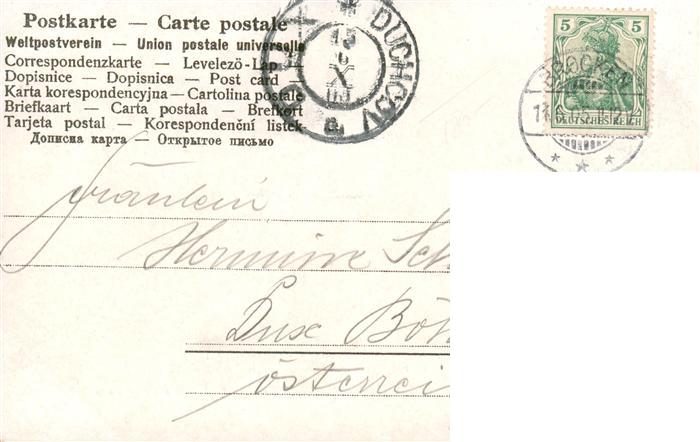 Postkarte — Carte postale
Weltpostverein — Union postale universelle
Correspondenzkarte — Levelező-Lap
Dopisnice — Dopisnica — Post card —
Karta korespondencyjna — Cartolina postale
Briefkaart — Carta postala — Brefkort
Tarjeta postal — Korespondenční lístek
Дописна карта — Открытое письмо
DUCHCOV
5 5
DEUTSCHES REICH
BROCKEN
Fräulein
Hermine Sch
Dux Böh
Österrei